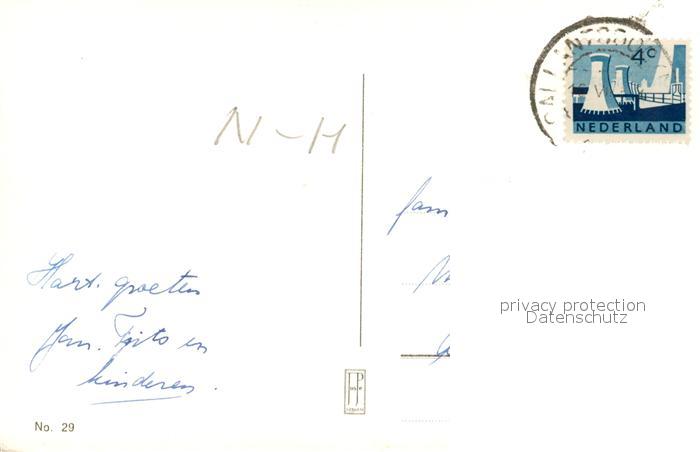 4c
NEDERLAND
N-H
fam
Hart. groeten
fam. Fijto en
kinderen.
privacy protection
Datenschutz
No. 29